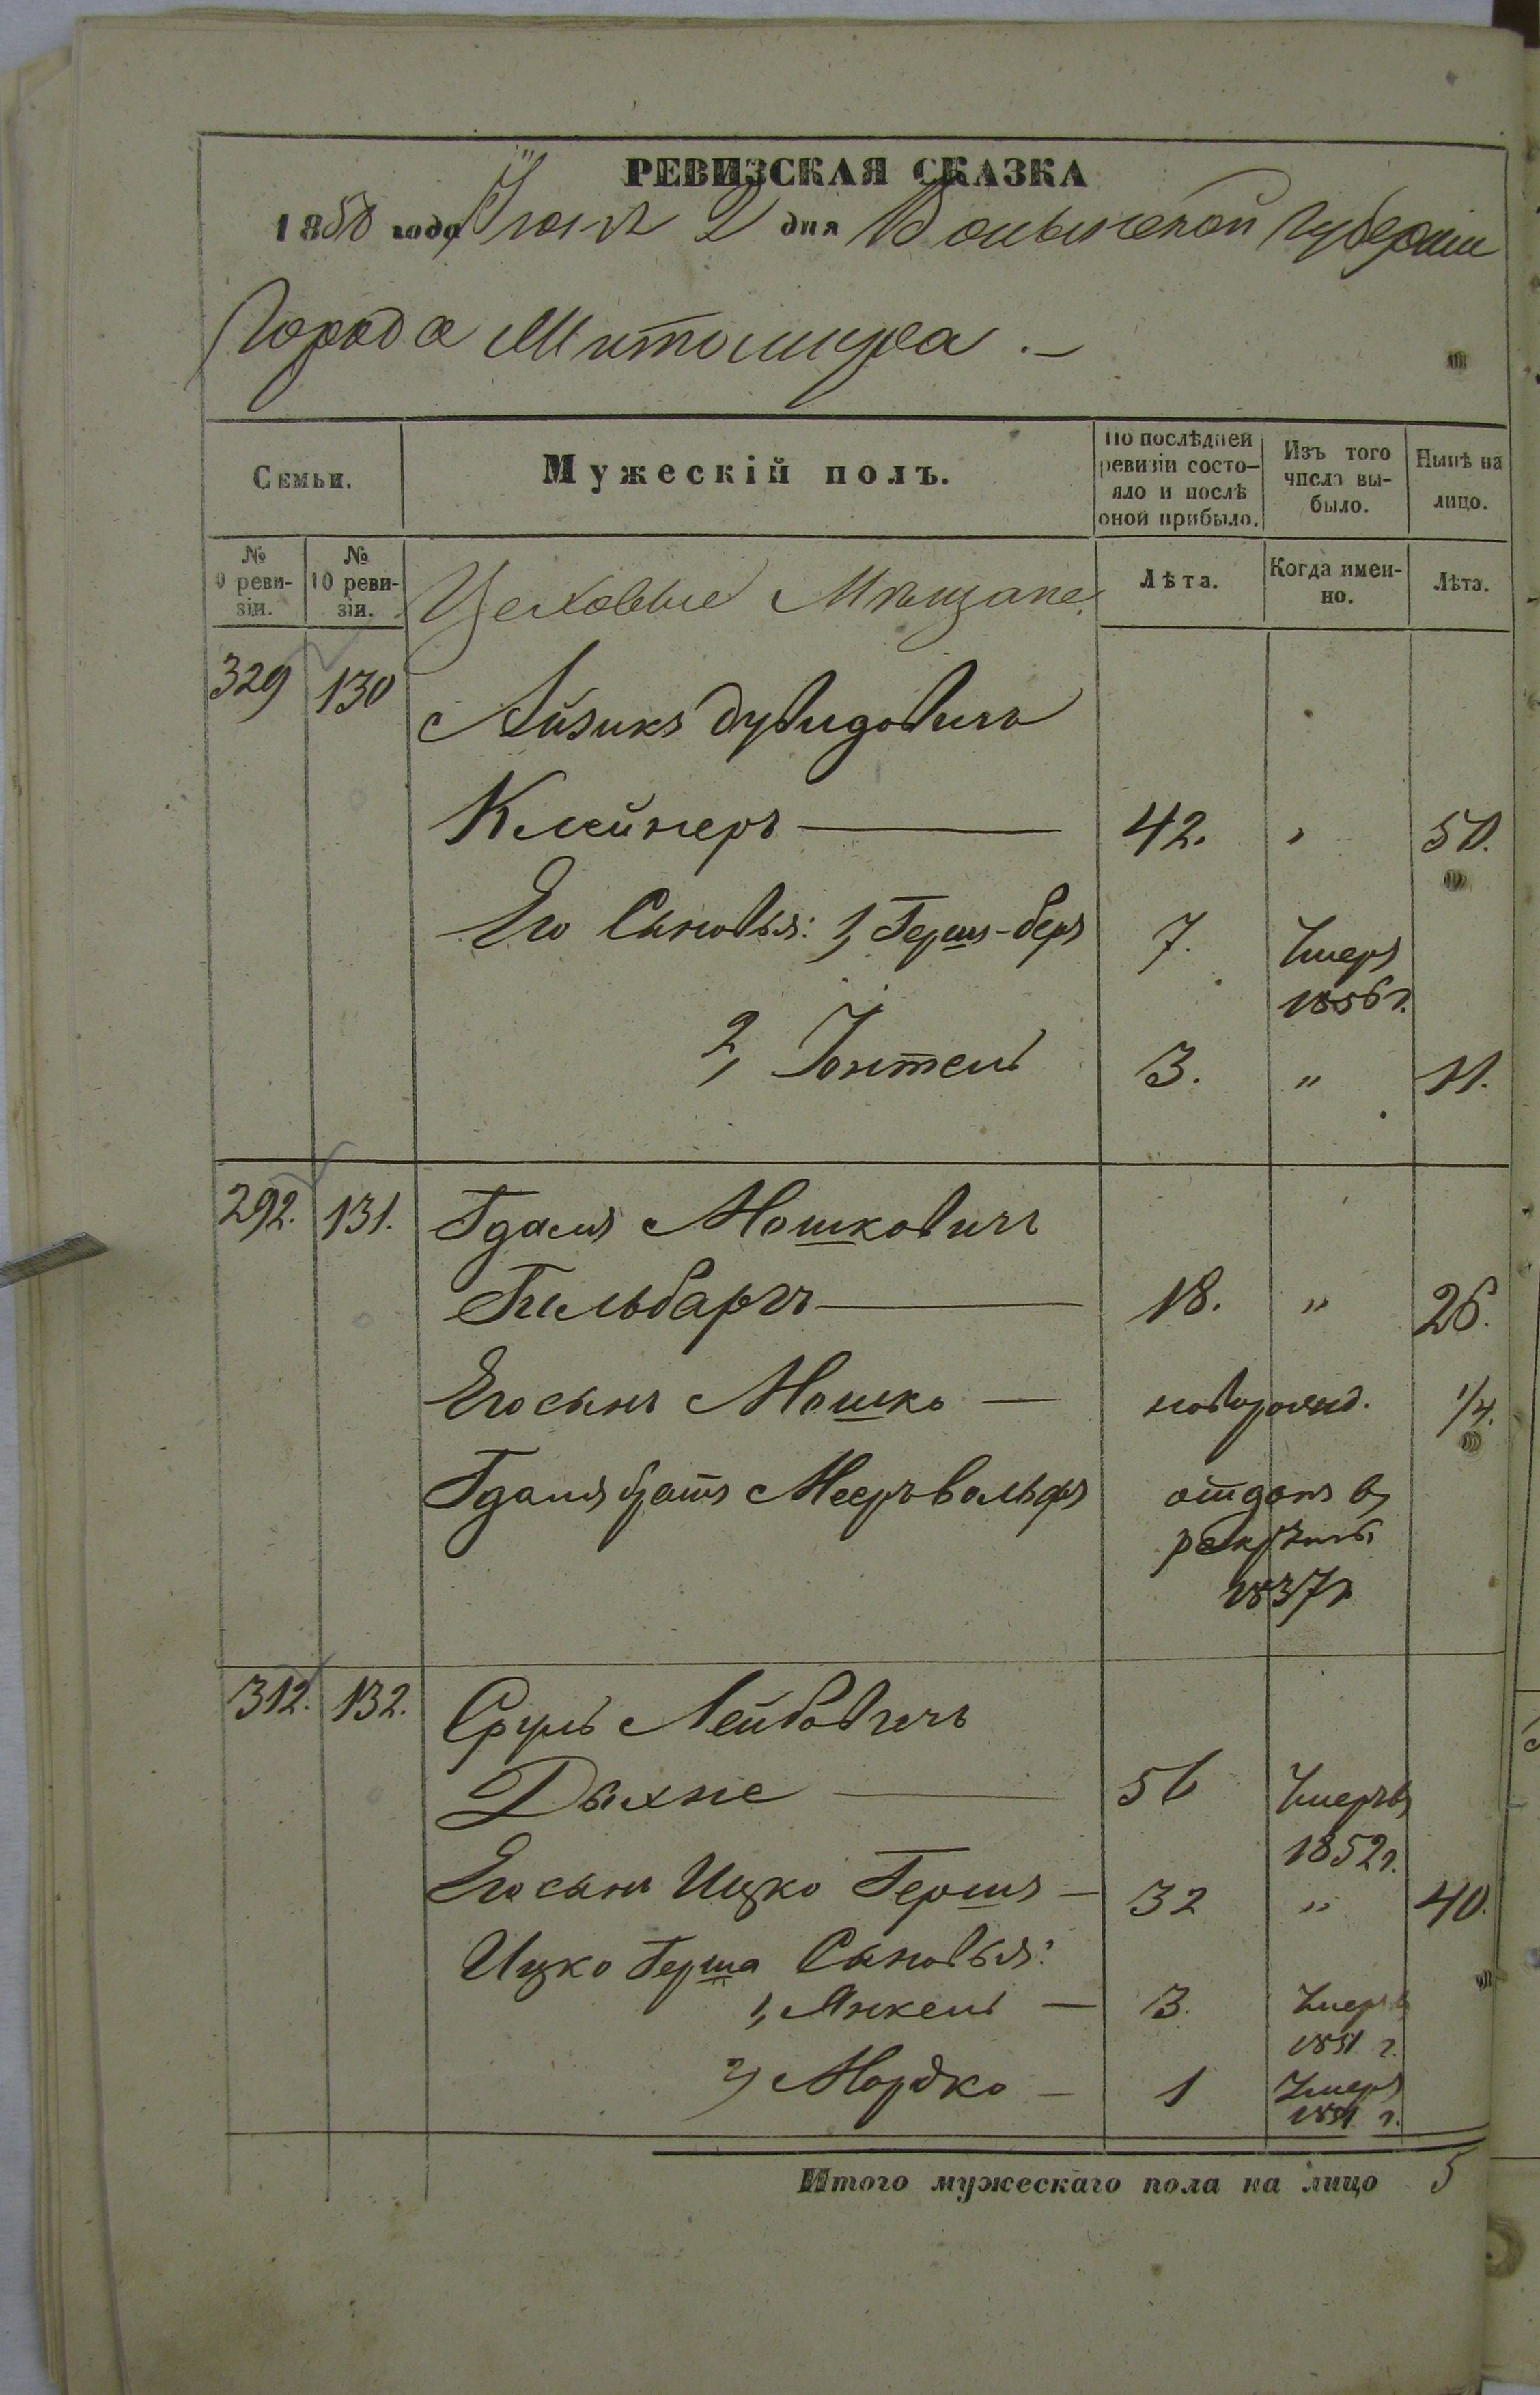 РЕВИЗСКАЯ СКАЗКА
1858 года Іюня 2 дня Волынской Губерніи
Города Житомира.
Семьи.
Мужескій полъ.
По послѣдней ревизіи состо-
яло и послѣ
оной прибыло.
Изъ того
числа вы-
было.
Нынѣ на
лицо.
№
9 реви-
зіи.
№
10 реви-
зіи.
Цеховые Мѣщане.
Лѣта.
Когда имен-
но.
Лѣта.
329 130 Айзикъ Дувидовичъ
Клейнеръ — 42. " 50.
Его Сыновья: 1, Гершъ-беръ 7. Умеръ
1856 г.
2, Іонтель 3. " 11.
292. 131. Гдаля Мошковичъ
Гильбаргъ — 18. " 26.
Его сынъ Мошко — новорожд. 1/4.
Гдаля братъ Мееръ вольфъ отданъ въ
рекруты
1837 г
312. 132. Сруль Лейбовичъ
Дыхне — 56 Умеръ въ
1852 г.
Его сынъ Ицко Гершъ — 32 " 40.
Ицко Герша Сыновья:
1, Янкель — 3. Умеръ
1851 г.
2, Мордко — 1 Умеръ
1851 г.
Итого мужескаго пола на лицо 5